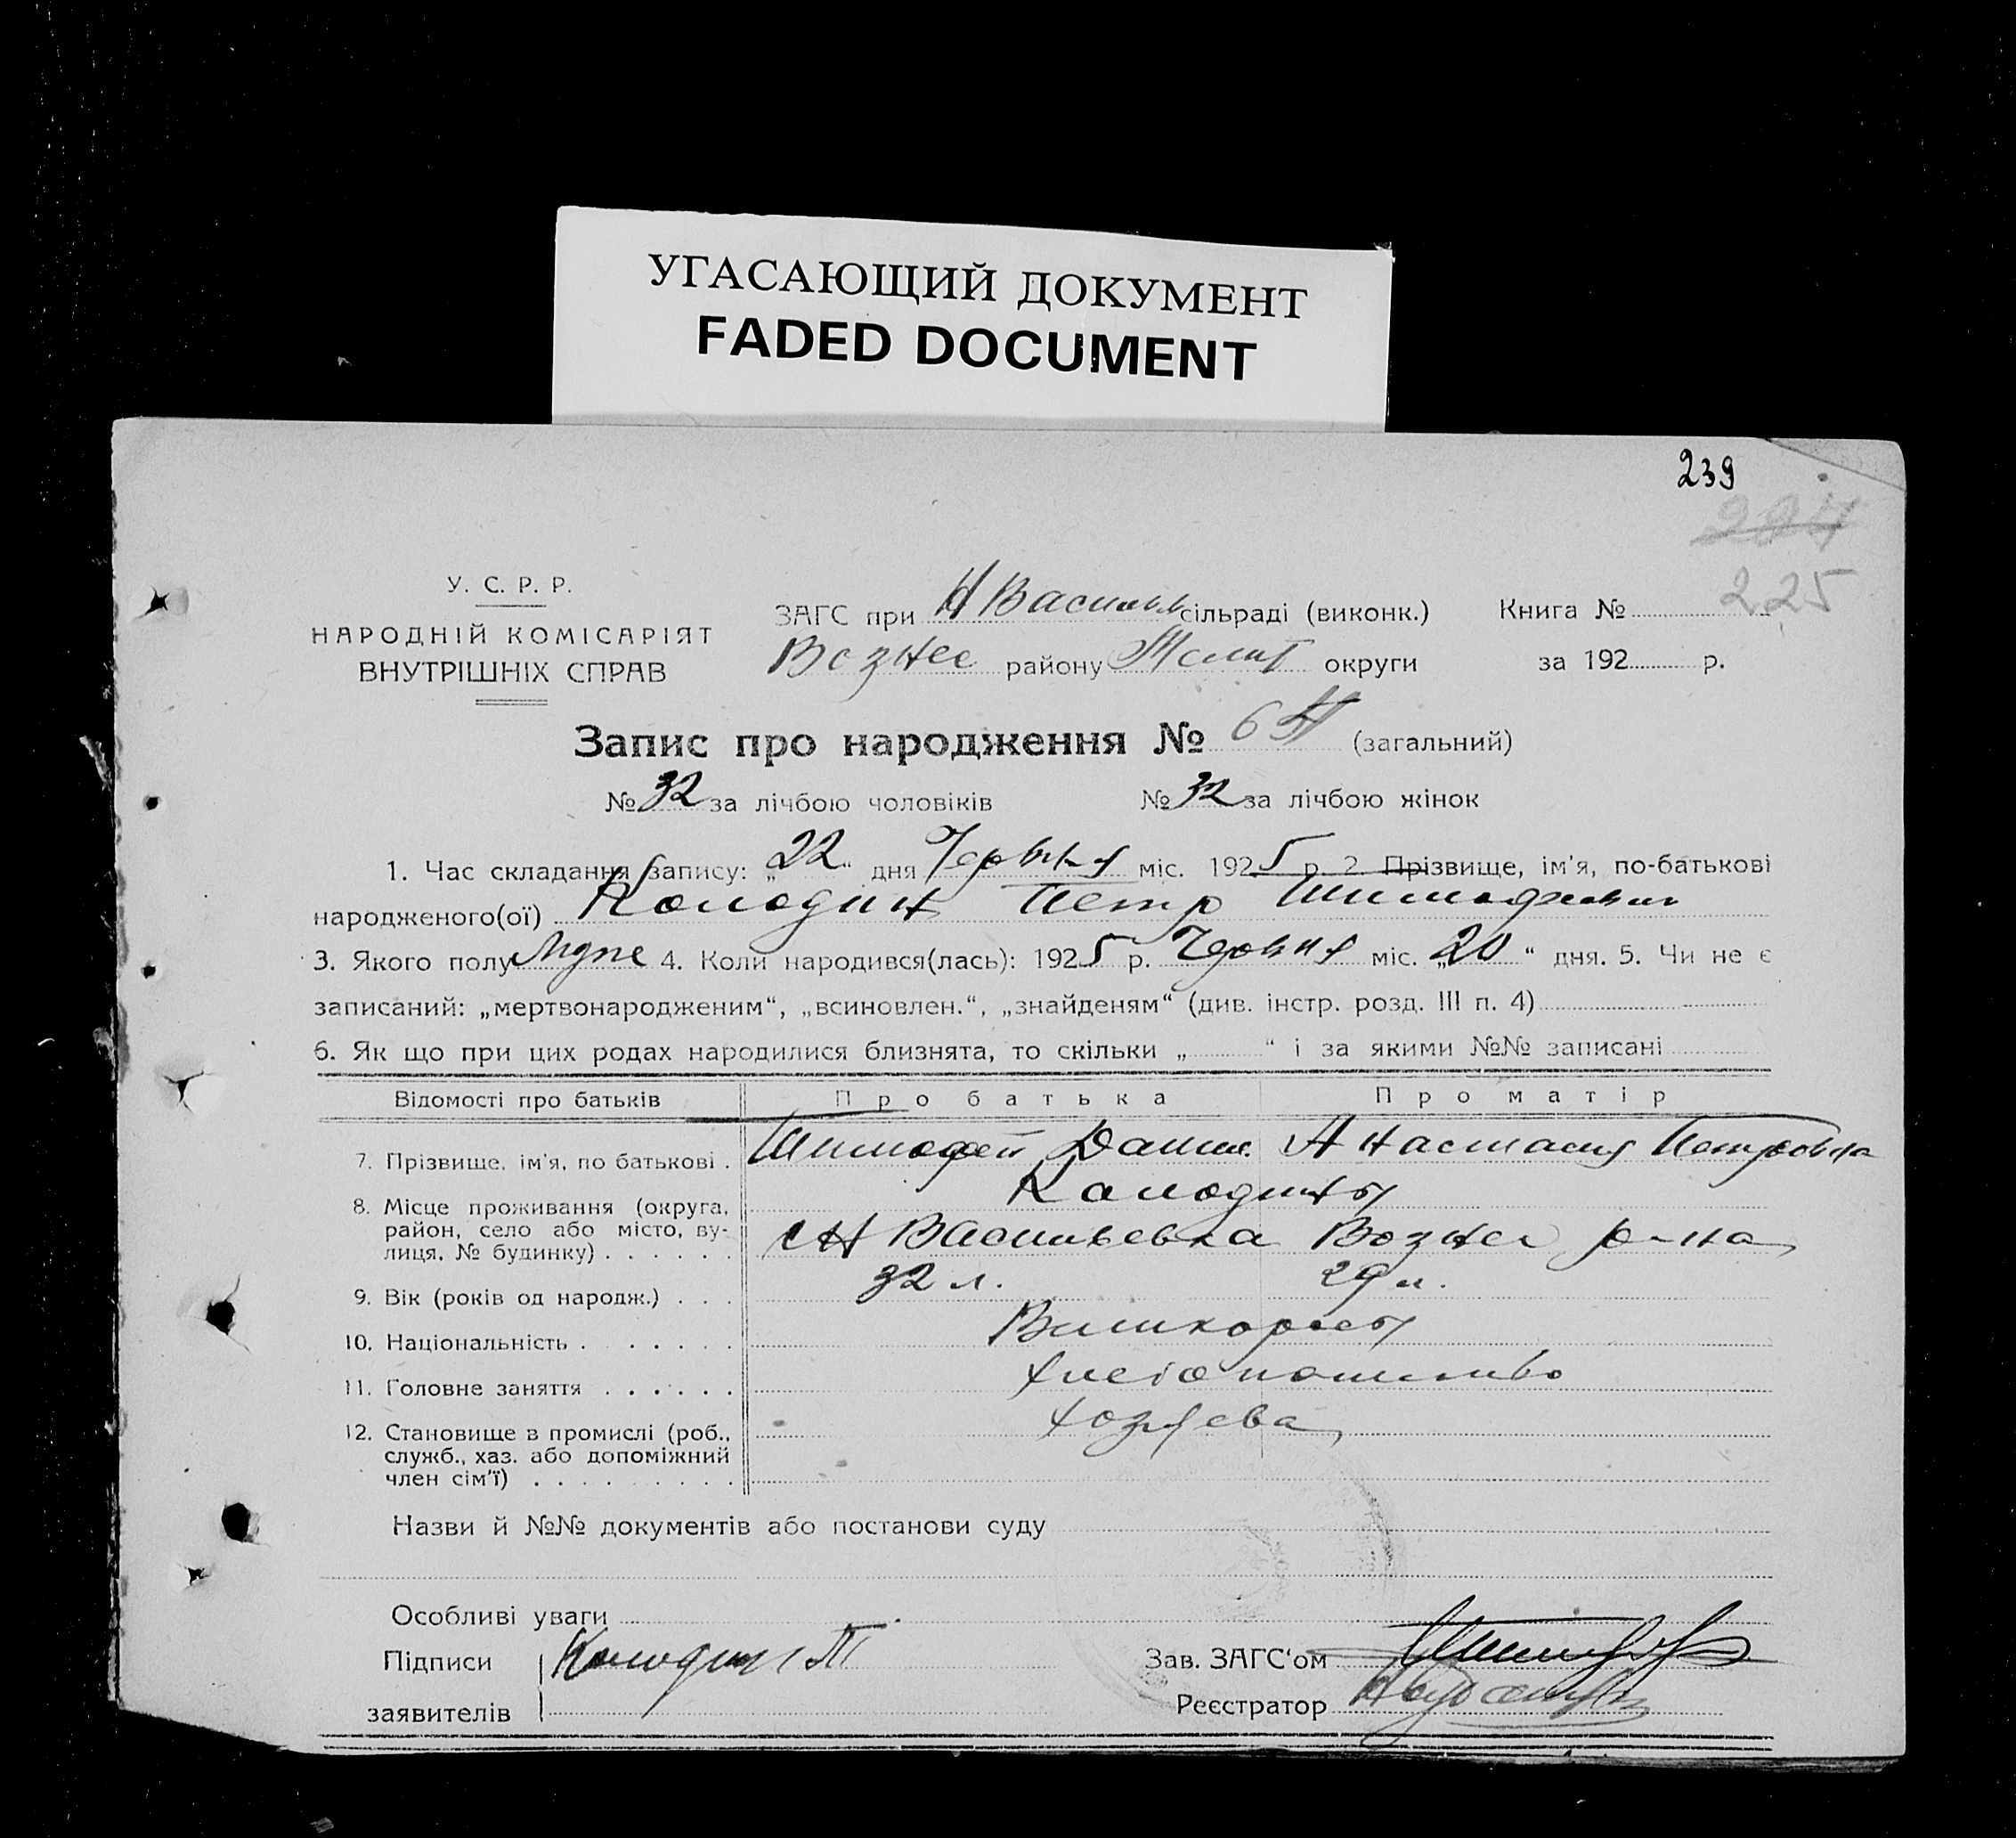 УГАСАЮЩИЙ ДОКУМЕНТ
FADED DOCUMENT
239
224
225
У. С. Р. Р.
НАРОДНІЙ КОМІСАРІЯТ
ВНУТРІШНІХ СПРАВ
ЗАГС при Н Васильв сільраді (виконк.) Книга №
Вознес району Мелит округи за 192 р.
Запис про народження № 64 (загальний)
№ 32 за лічбою чоловіків № 32 за лічбою жінок
1. Час складання запису: „22“ дня Червня міс. 1925 р. 2. Прізвище, ім'я, по-батькові
народженого(ої) Колодин Петр Тимофеевич
3. Якого полу Муже 4. Коли народився(лась): 1925 р. Червня міс. „20“ дня. 5. Чи не є
записаний: „мертвонародженим“, „всиновлен.“, „знайденям“ (див. інстр. розд. III п. 4)
6. Як що при цих родах народилися близнята, то скільки „ “ і за якими №№ записані
Відомості про батьків Про батька Про матір
7. Прізвище, ім'я, по батькові . Тимофей Данил. Анастасия Петровна
Колодины
8. Місце проживання (округа,
район, село або місто, ву-
лиця, № будинку) . . . . . . с Н Васильевка Вознес р-на
9. Вік (років од народж.) . . . 32 л. 29 л.
10. Національність . . . . . . Виликоросы
11. Головне заняття . . . . . . хлебопашество
12. Становище в промислі (роб.,
служб., хаз. або допоміжний
член сім'ї) . . . . . . . . . хозяева
Назви й №№ документів або постанови суду
Особливі уваги
Підписи Колодин Т Зав. ЗАГС'ом
заявителів Реєстратор